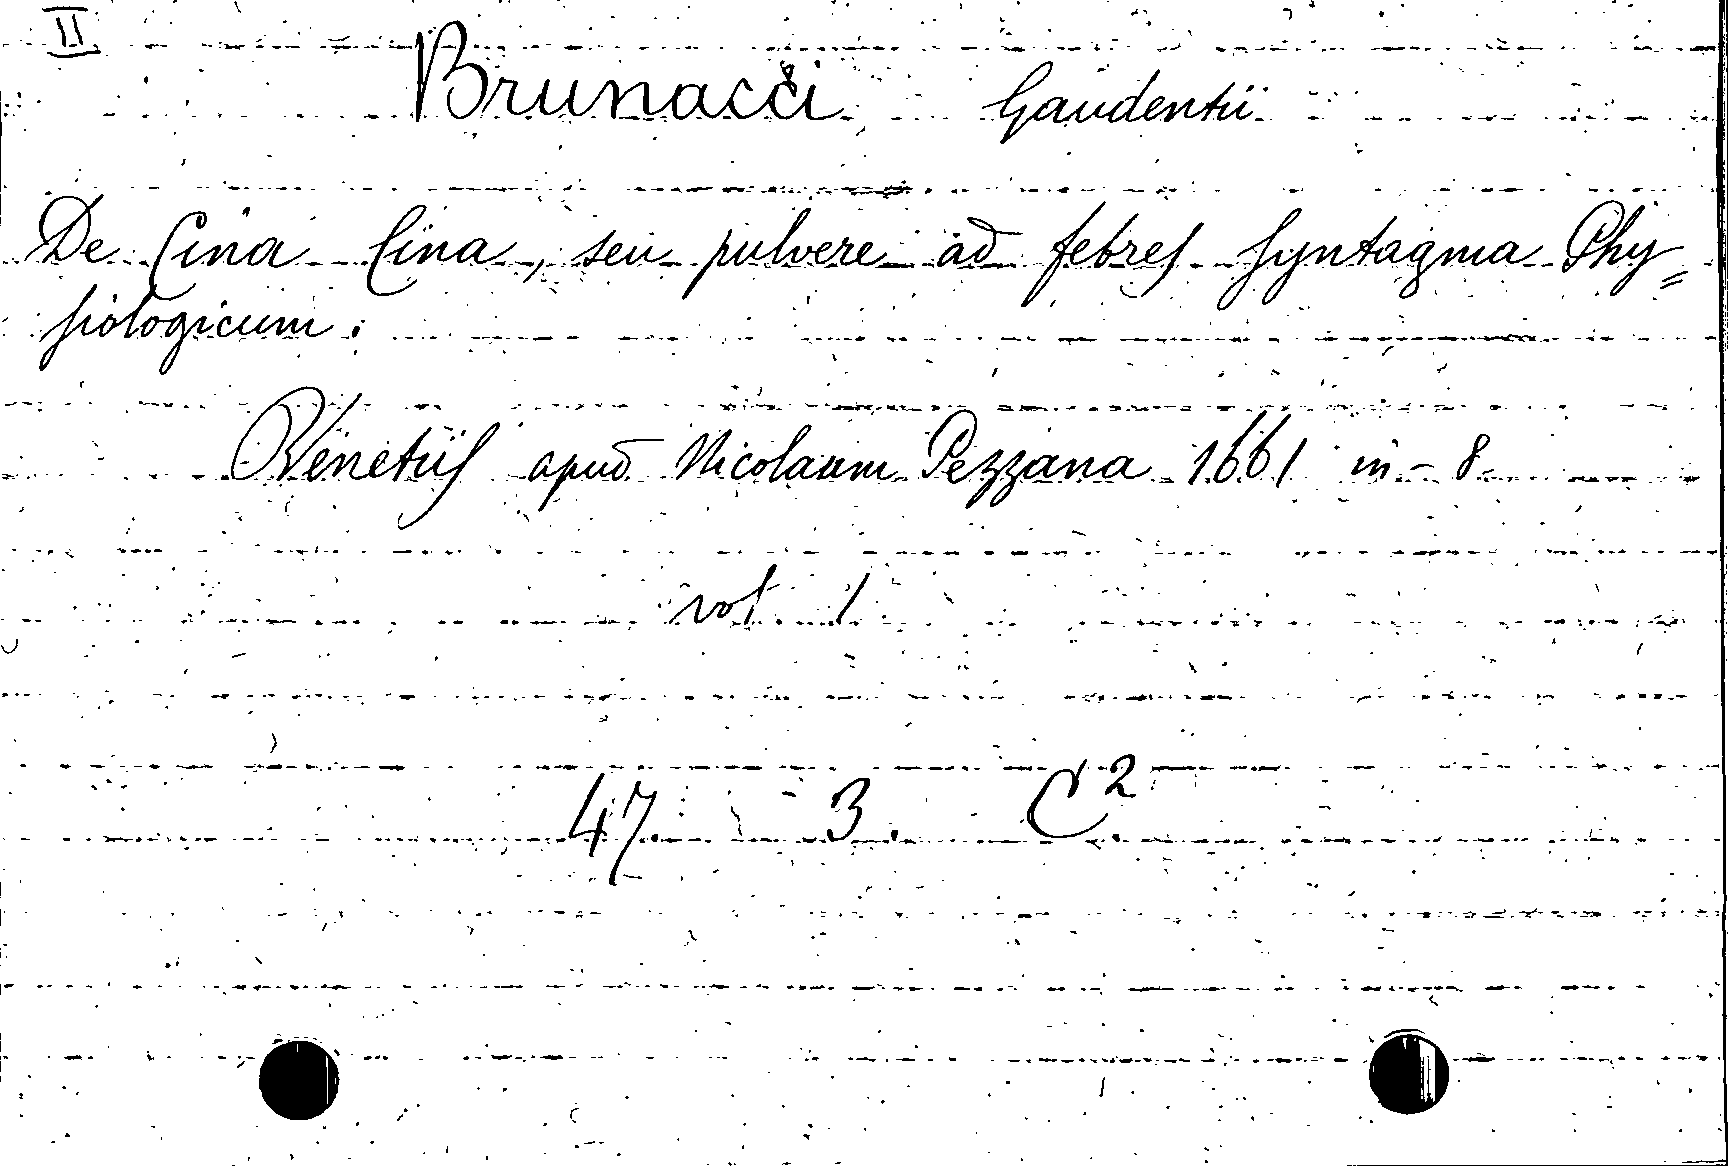 II
Brunacci Gaudentii
De Cina Cina, seu pulvere ad febres Syntagma Phy=
siologicum.
Venetiis apud Nicolaum Pezzana 1661 in-8
vol 1
47. 3. C2.